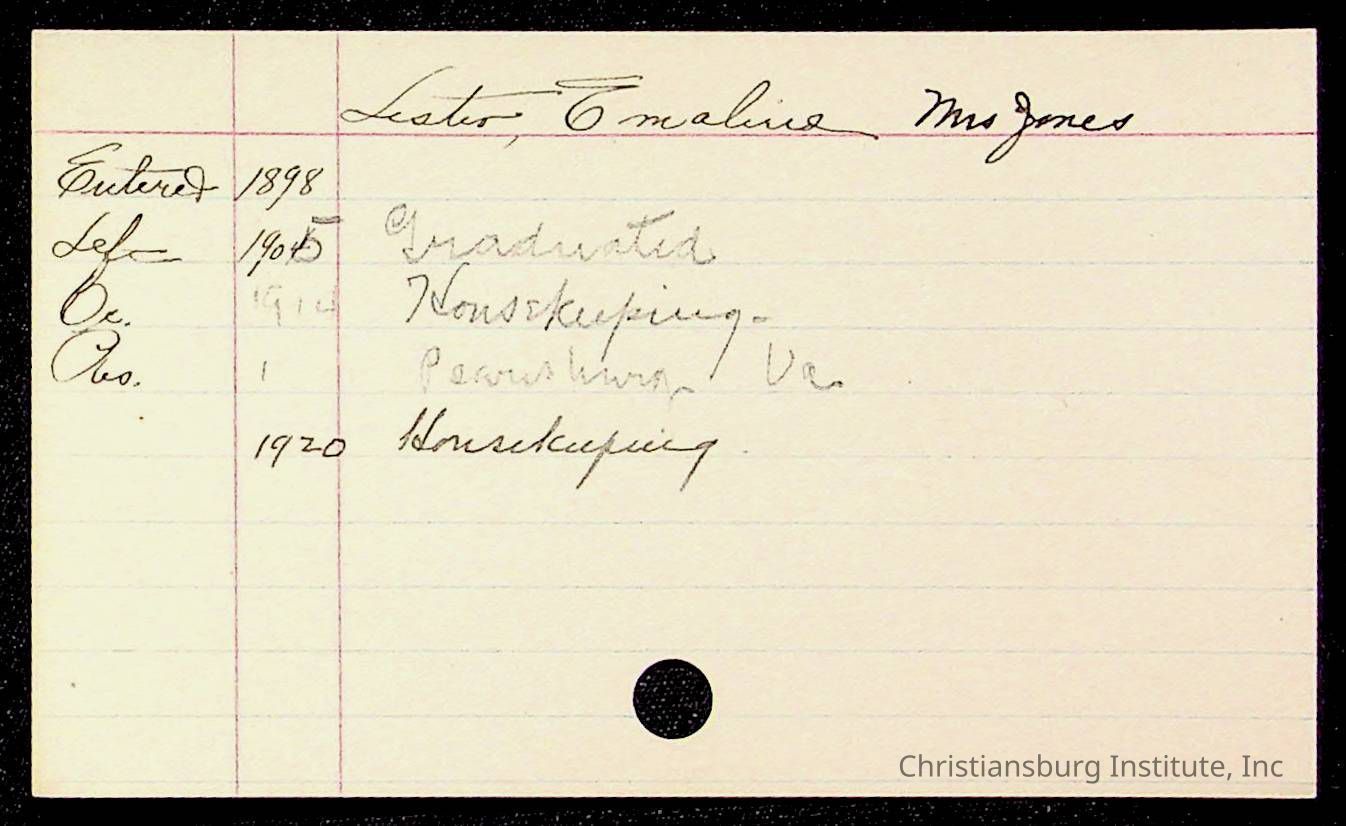 Lester, Emaline Mrs Jones
Entered 1898
Left 1905 Graduated
Oc. 1914 Housekeeping-
Res. Pearisburg Va
1920 Housekeeping
Christiansburg Institute, Inc